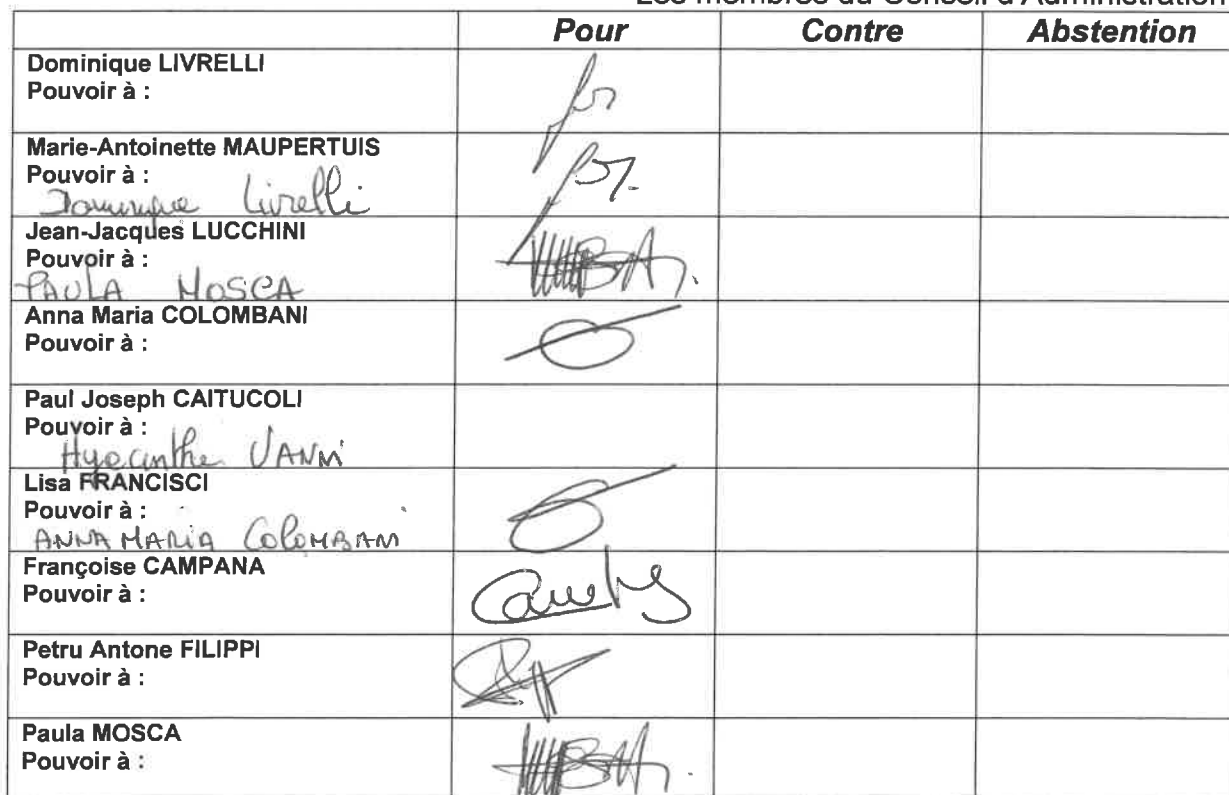 Les membres du Conseil d'Administration
Pour Contre Abstention
Dominique LIVRELLI
Pouvoir à :
Marie-Antoinette MAUPERTUIS
Pouvoir à :
Dominique Livrelli
Jean-Jacques LUCCHINI
Pouvoir à :
PAULA MOSCA
Anna Maria COLOMBANI
Pouvoir à :
Paul Joseph CAITUCOLI
Pouvoir à :
Hyacinthe VANNI
Lisa FRANCISCI
Pouvoir à :
ANNA MARIA COLOMBANI
Françoise CAMPANA
Pouvoir à :
Petru Antone FILIPPI
Pouvoir à :
Paula MOSCA
Pouvoir à :